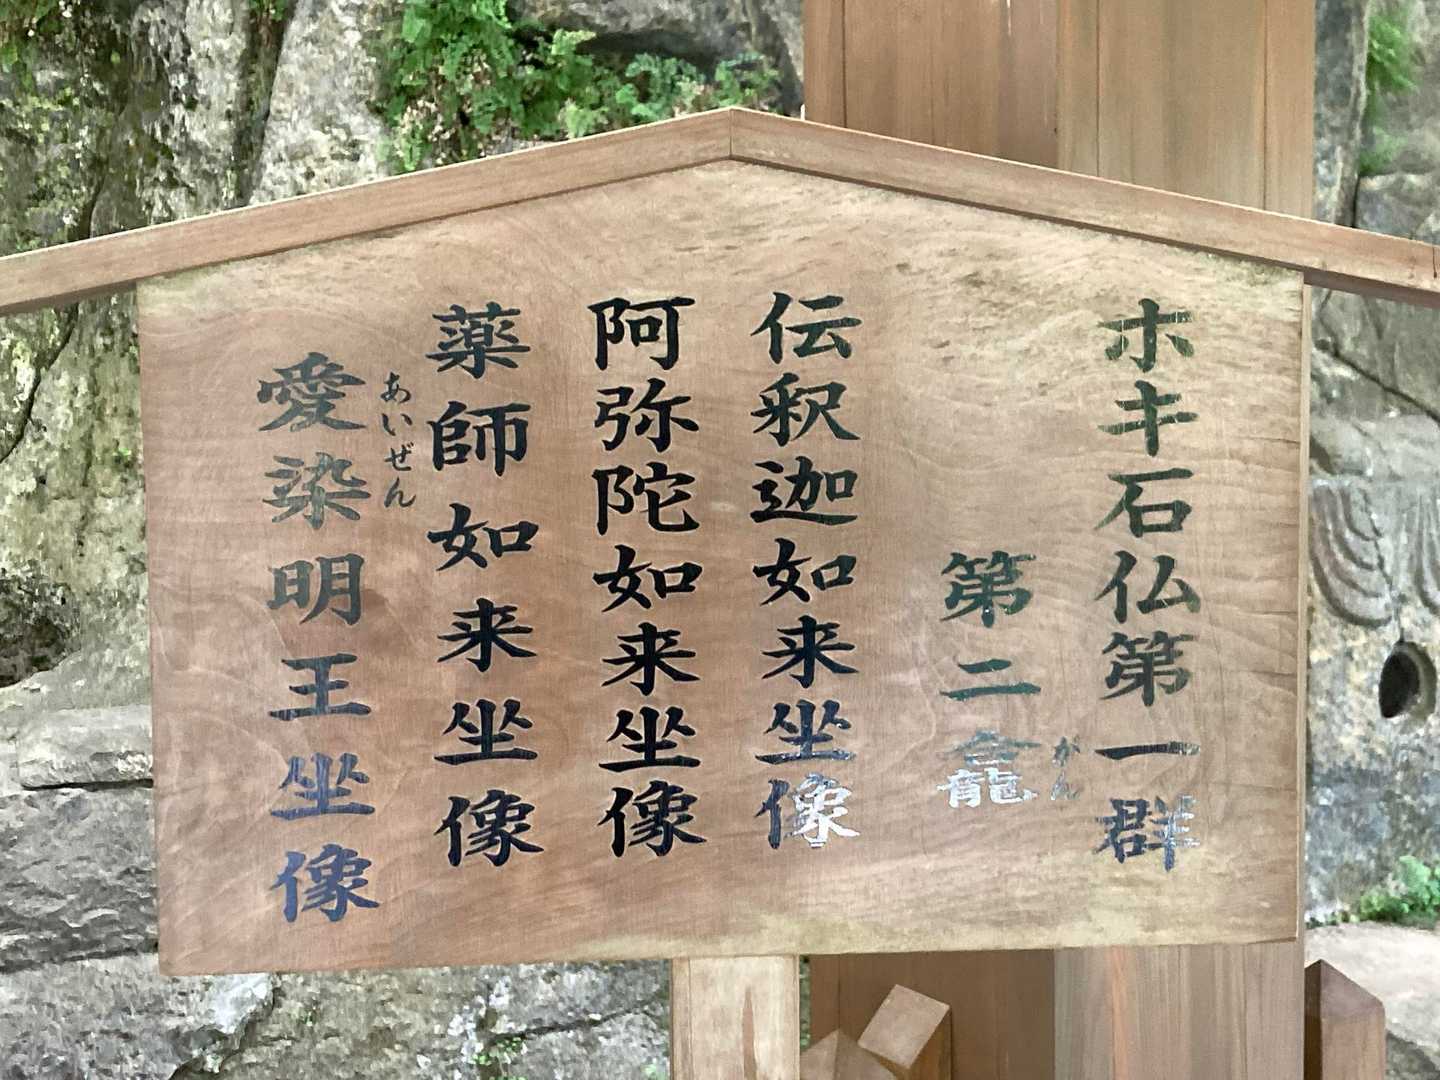 ホキ石仏第一群
第二龕
がん
伝釈迦如来坐像
阿弥陀如来坐像
薬師如来坐像
あいぜん
愛染明王坐像